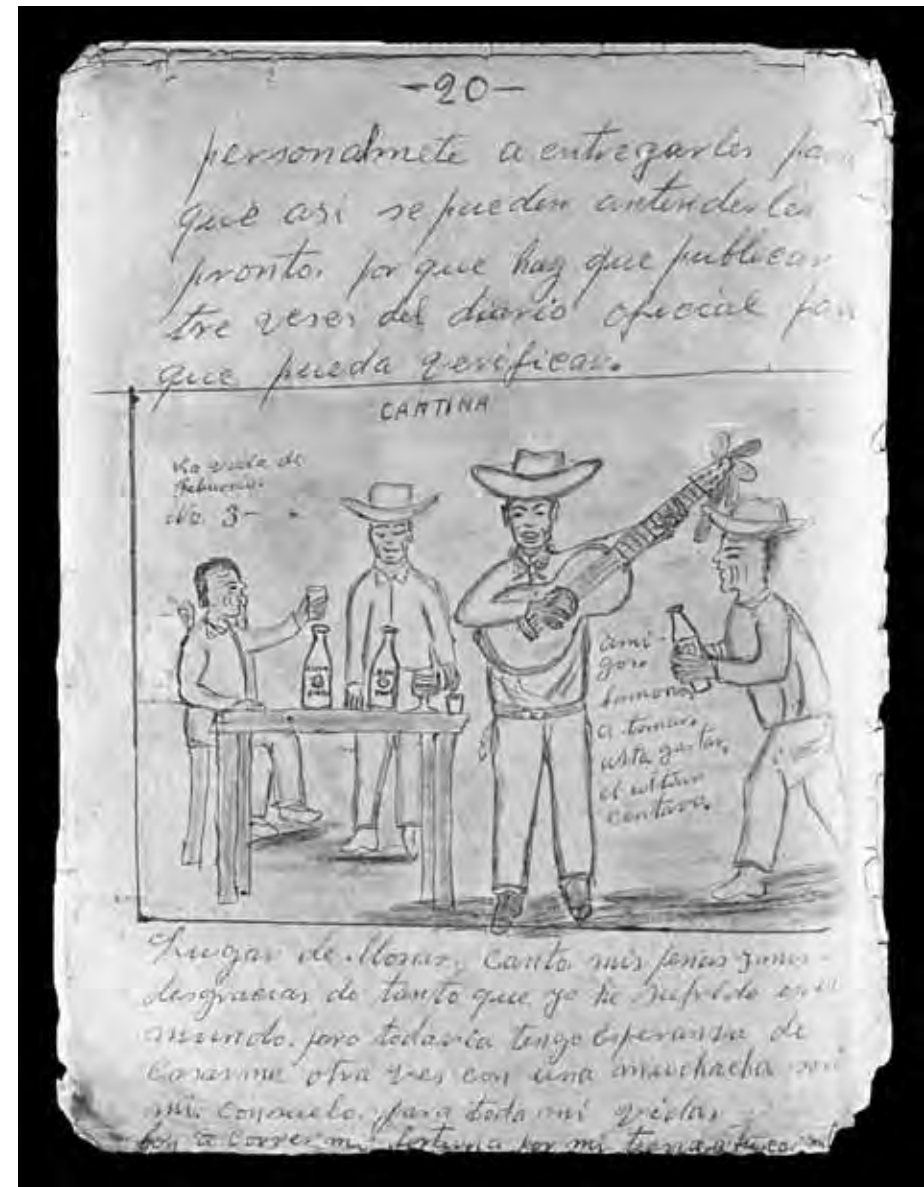 -20-
personalmete a entregarles para
que asi se pueden antenderles
pronto. por que hay que publicar
tre veses del diario oficial para
que pueda verificar.
CANTINA
La vida de
No. 3-
ami-
gos.
bamonos
a tomar.
asta gastar,
el ultimo
centavo.
Lugar de llorar, canto mis penas
desgracias de tanto que yo he sufrido
mundo. pero todavia tengo esperansa de
casarme otra ves con una muchacha
mi consuelo. para toda mi vida
boy a correr mi fortuna por mi tierra